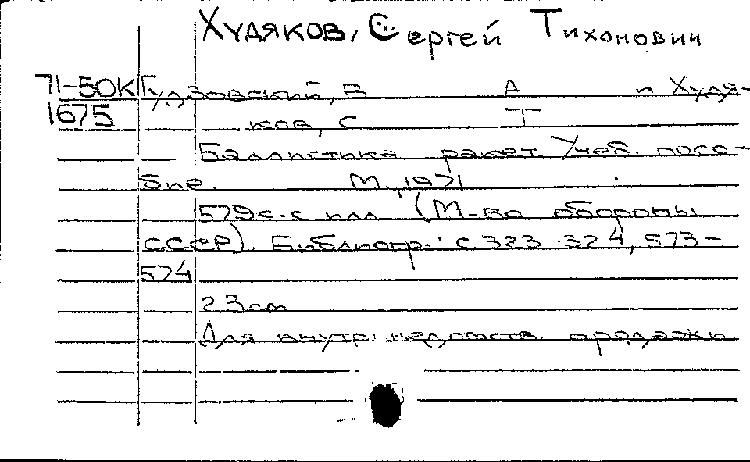 Худяков, Сергей Тихонович
71-50К Гудзовский, В А и Худя-
1675 ков, С Т
Баллистика ракет. Учеб. посо-
бие. М., 1971
579 с. с илл. (М-во обороны
СССР). Библиогр.: с 323-324, 573-
574
23 см
Для внутриведомств. продажи